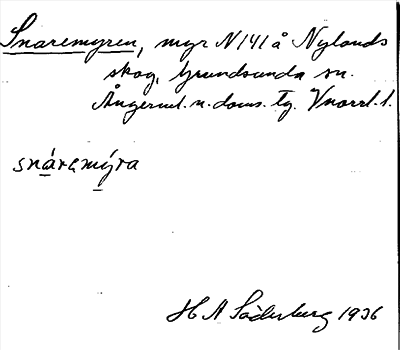 Snaremyren, myr N 141 å Nylands
skog, Grundsunda sn.
Ångerml. n. doms. tg. Vnorrl. l.
snáremýra
H A Söderberg 1936